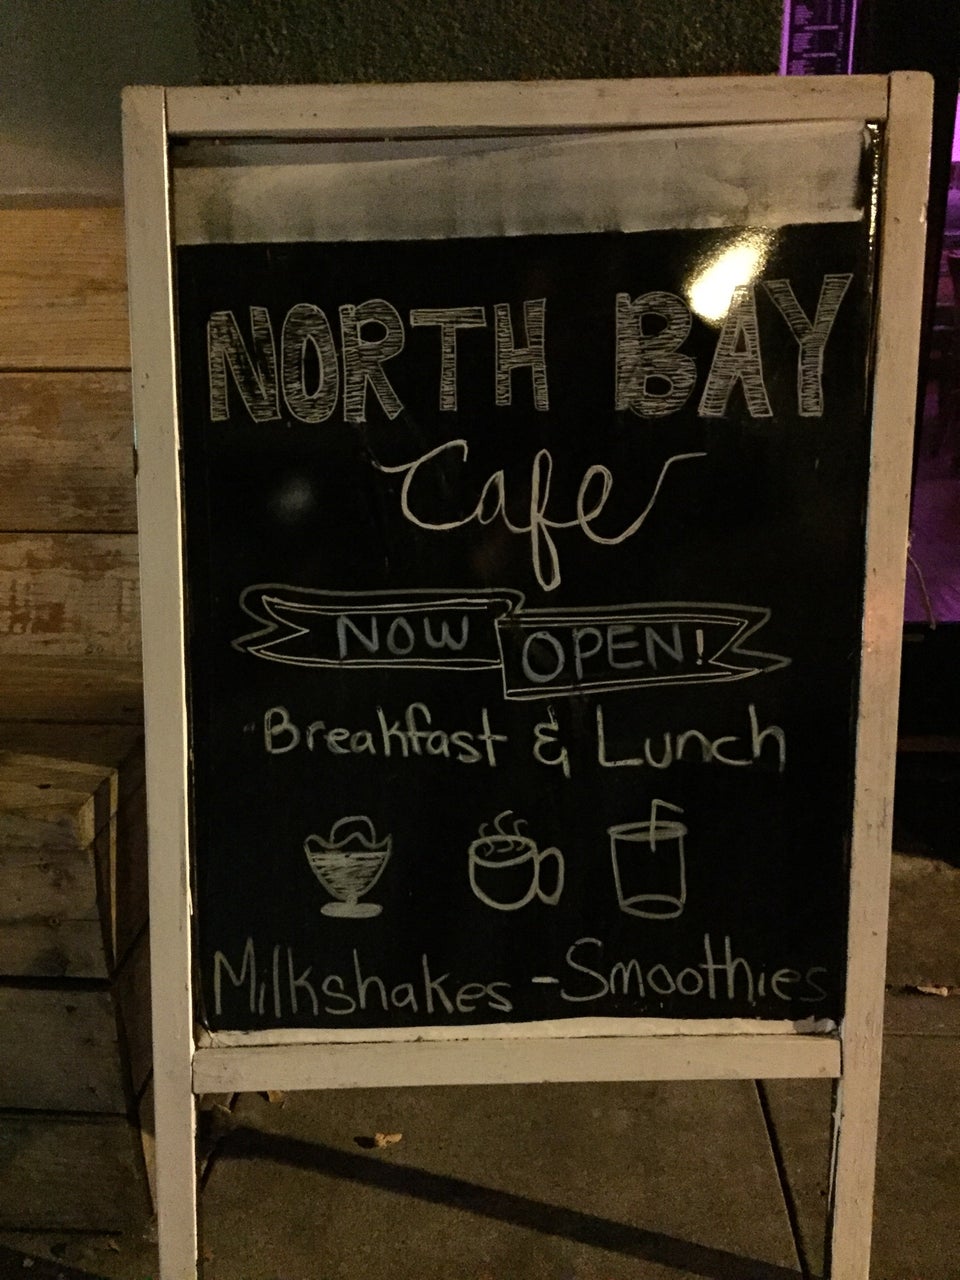 NORTH BAY
Cafe
NOW OPEN!
Breakfast & Lunch
Milkshakes - Smoothies